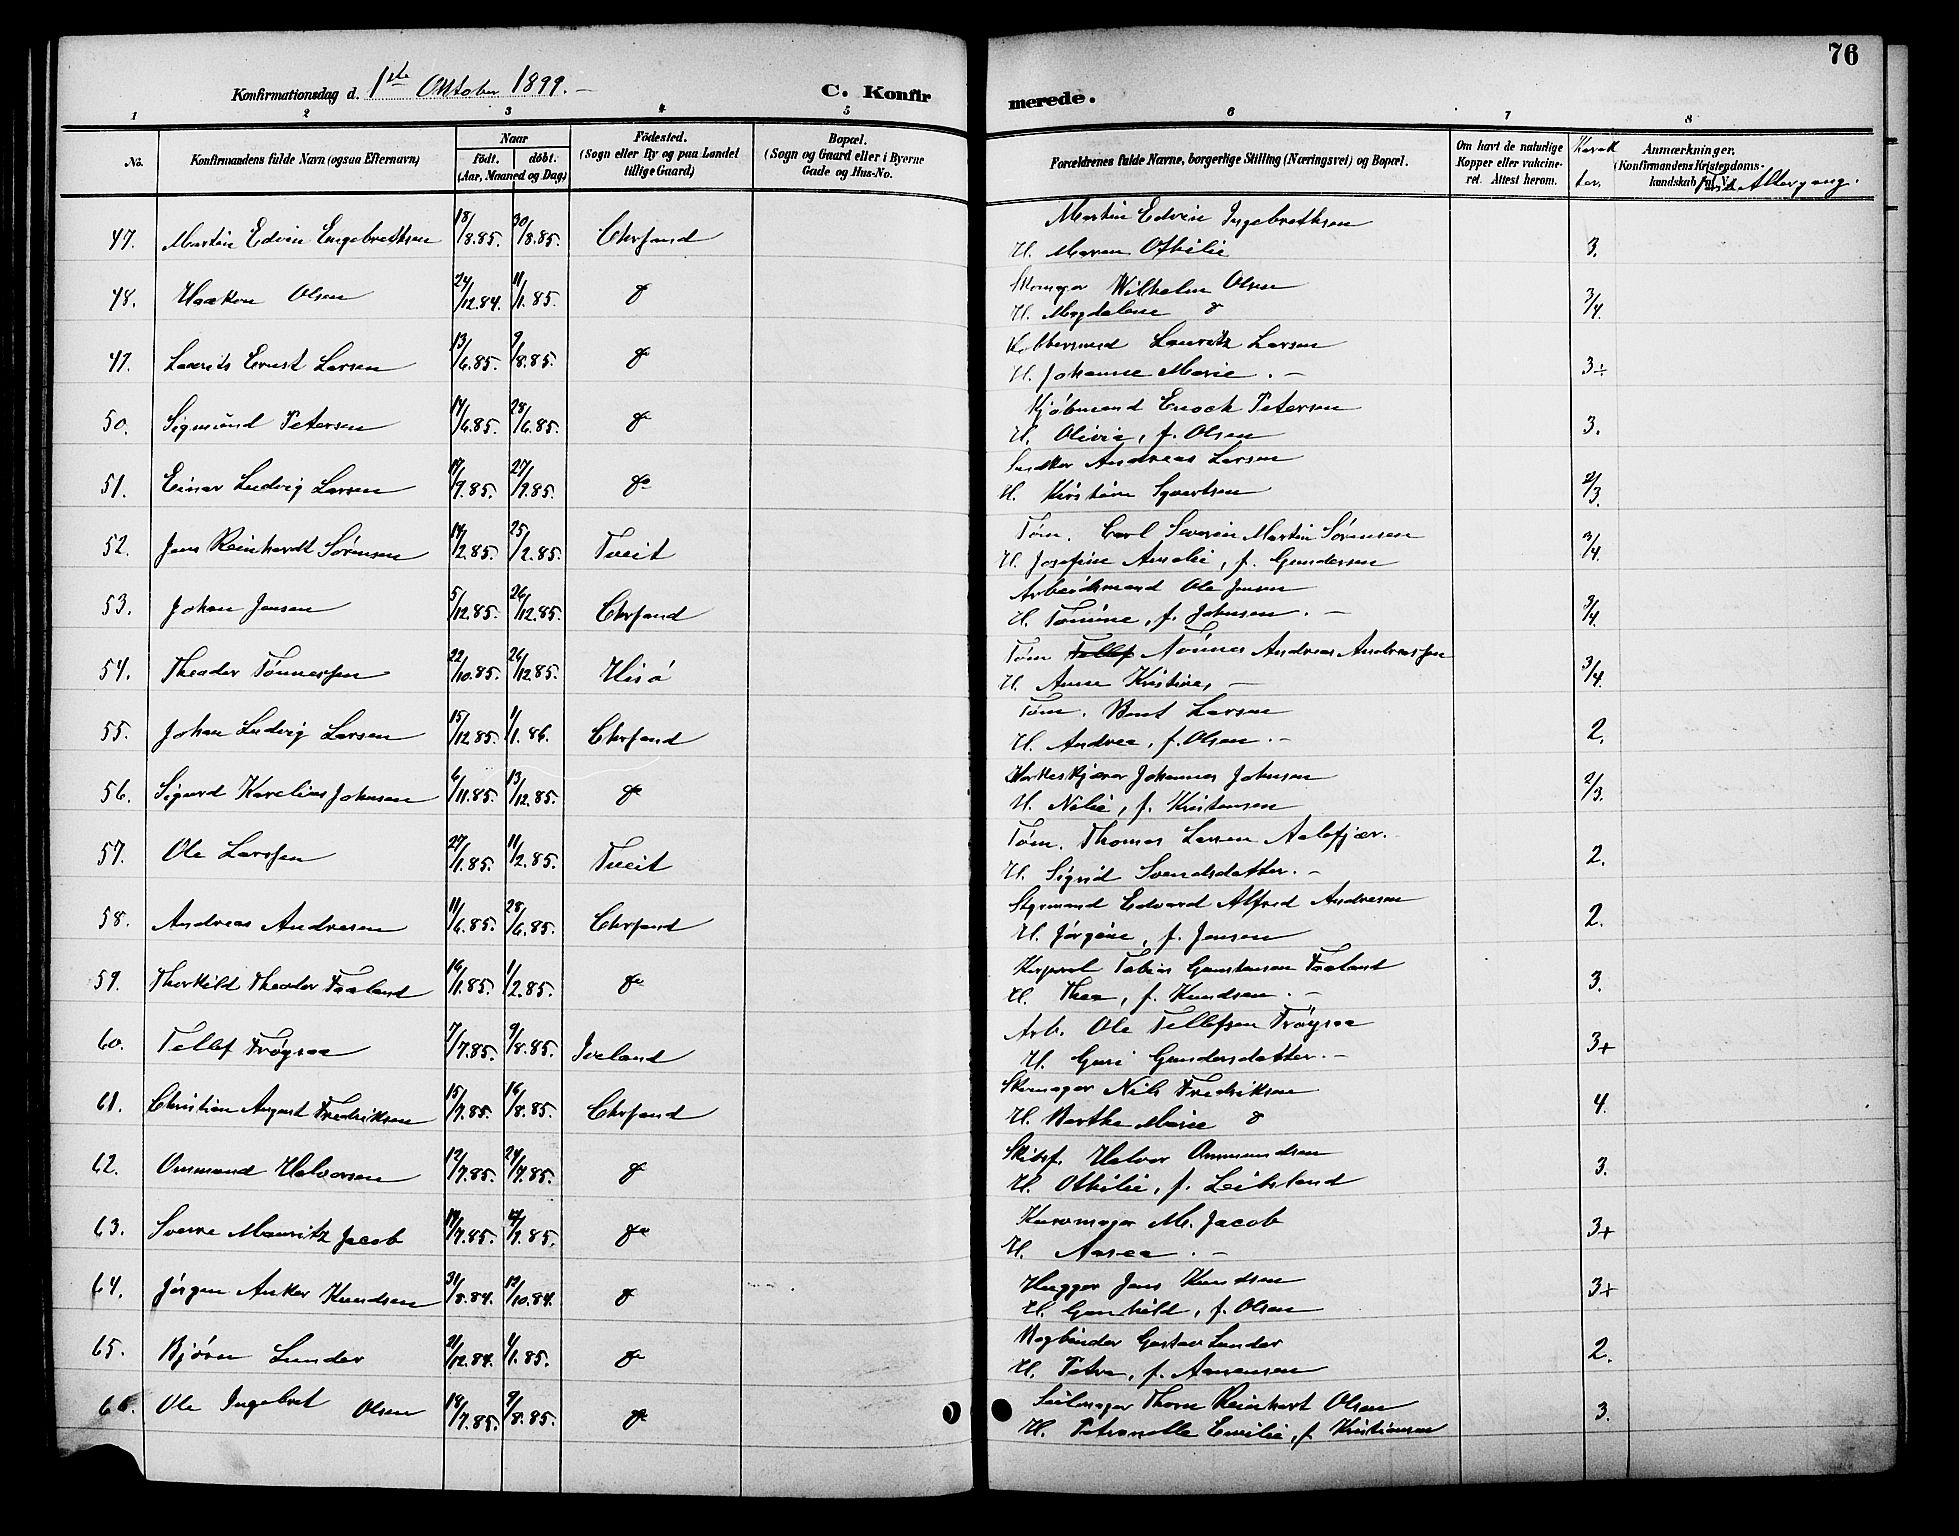 76
Konfirmationsdag d. 1ste Oktober 1899. –
C. Konfirmerede.
1 2 3 4 5 6 7 8
No.
Konfirmandens fulde Navn (ogsaa Efternavn)
Naar
født. døbt.
(Aar, Maaned og Dag)
Fødested.
(Sogn eller By og paa Landet
tillige Gaard)
Bopæl.
(Sogn og Gaard eller i Byerne
Gade og Hus-No.
Forældrenes fulde Navne, borgerlige Stilling (Næringsvei) og Bopæl.
Om havt de naturlige
Kopper eller vakcine-
ret. Attest herom.
Karak
ter.
Anmærkninger,
(Konfirmandens Kristendoms-
kundskab m. V.
Altergang.
47. Martin Edvin Engebrethsen 18/8.85. 30/8.85. Chrsand Martin Edvin Ingebrethsen
H. Maren Othilie 3.
48. Haakon Olsen 24/12.84. 11/1.85. do Skomager Wilhelm Olsen
H. Magdalene do 3/4.
49. Laurits Ernst Larsen 13/6.85. 9/8.85. do Kobbersmed Lauritz Larsen
H. Johanne Marie. – 3÷
50. Sigmund Petersen 14/6.85. 28/6.85. do Kjøbmand Enoch Petersen
H. Olivia, f. Olsen 3.
51. Einar Ludvig Larsen 17/9.85. 27/9.85. do Snedker Andreas Larsen
H. Kirstine Syvertsen 2/3.
52. Jens Reinhardt Sørensen 14/2.85. 25/2.85. Tveit Tøm. Carl Severin Martin Sørensen
H. Josefine Amalie, f. Gundersen 3/4.
53. Johan Jensen 5/12.85. 26/12.85. Chrsand Arbeidsmand Ole Jensen
H. Tomine, f. Johnsen. – 3/4.
54. Theodor Tønnessen 22/10.85. 26/12.85. Hisø Tøm Tellef Tønnes Andreas Andreassen
H. Anne Kristine, – 3/4.
55. Johan Ludvig Larsen 15/12.85. 1/1.86. Chrsand Tøm. Bent Larsen
H. Andrea, f. Olsen. – 2.
56. Sigurd Karelius Johnsen 6/11.85. 13/12.85. do Johannes Johnsen
H. Nilie, f. Kristensen 2/3.
57. Ole Larssen 27/1.85. 11/2.85. Tveit Tøm. Thomas Larsen Aalefjær.
H. Sigrid Svendsdatter. – 2.
58. Andreas Andresen 11/6.85. 28/6.85. Chrsand Styrmand Edvard Alfred Andresen
H. Jørgine, f. Jensen 2.
59. Thorkild Theodor Faaland 16/1.85. 1/2.85. do Korporal Tobias Gunstensen Faaland
H. Thea, f. Knudsen. – 3.
60. Tellef Frøysaa 7/7.85. 9/8.85. Iveland Arb. Ole Tellefsen Frøysaa
H. Guri Gundersdatter. – 3+
61. Christian August Fredriksen 15/7.85. 16/8.85. Chrsand Skomager Nils Fredriksen
H. Berthe Marie do 4.
62. Ommund Halvorsen 12/7.85. 24/7.85. do Skibsf. Halvor Ommundsen
H. Othilie, f. Leiksland 3.
63. Sverre Mauritz Jacob do M. Jacob
H. Aasea. – 3+
64. Jørgen Anker Knudsen 31/8.84. 19/10.84. do Hugger Jens Knudsen
H. Gunhild, f. Olsen 3+
65. Bjørn Lunder 21/12.84. 4/1.85. do Bogbinder Gustav Lunder
H. Petra, f. Aanensen 2.
66. Ole Ingebret Olsen 18/7.85. 9/8.85. do Seilmager Thorn Reinhart Olsen
H. Petronelle Emilie, f. Kristiansen 3.